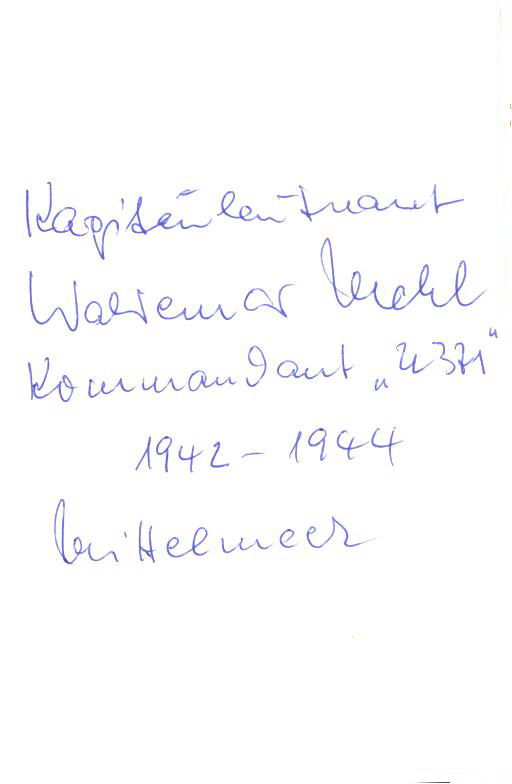 Kapitänleutnant
Waldemar Mehl
Kommandant „U 371“
1942 – 1944
Mittelmeer